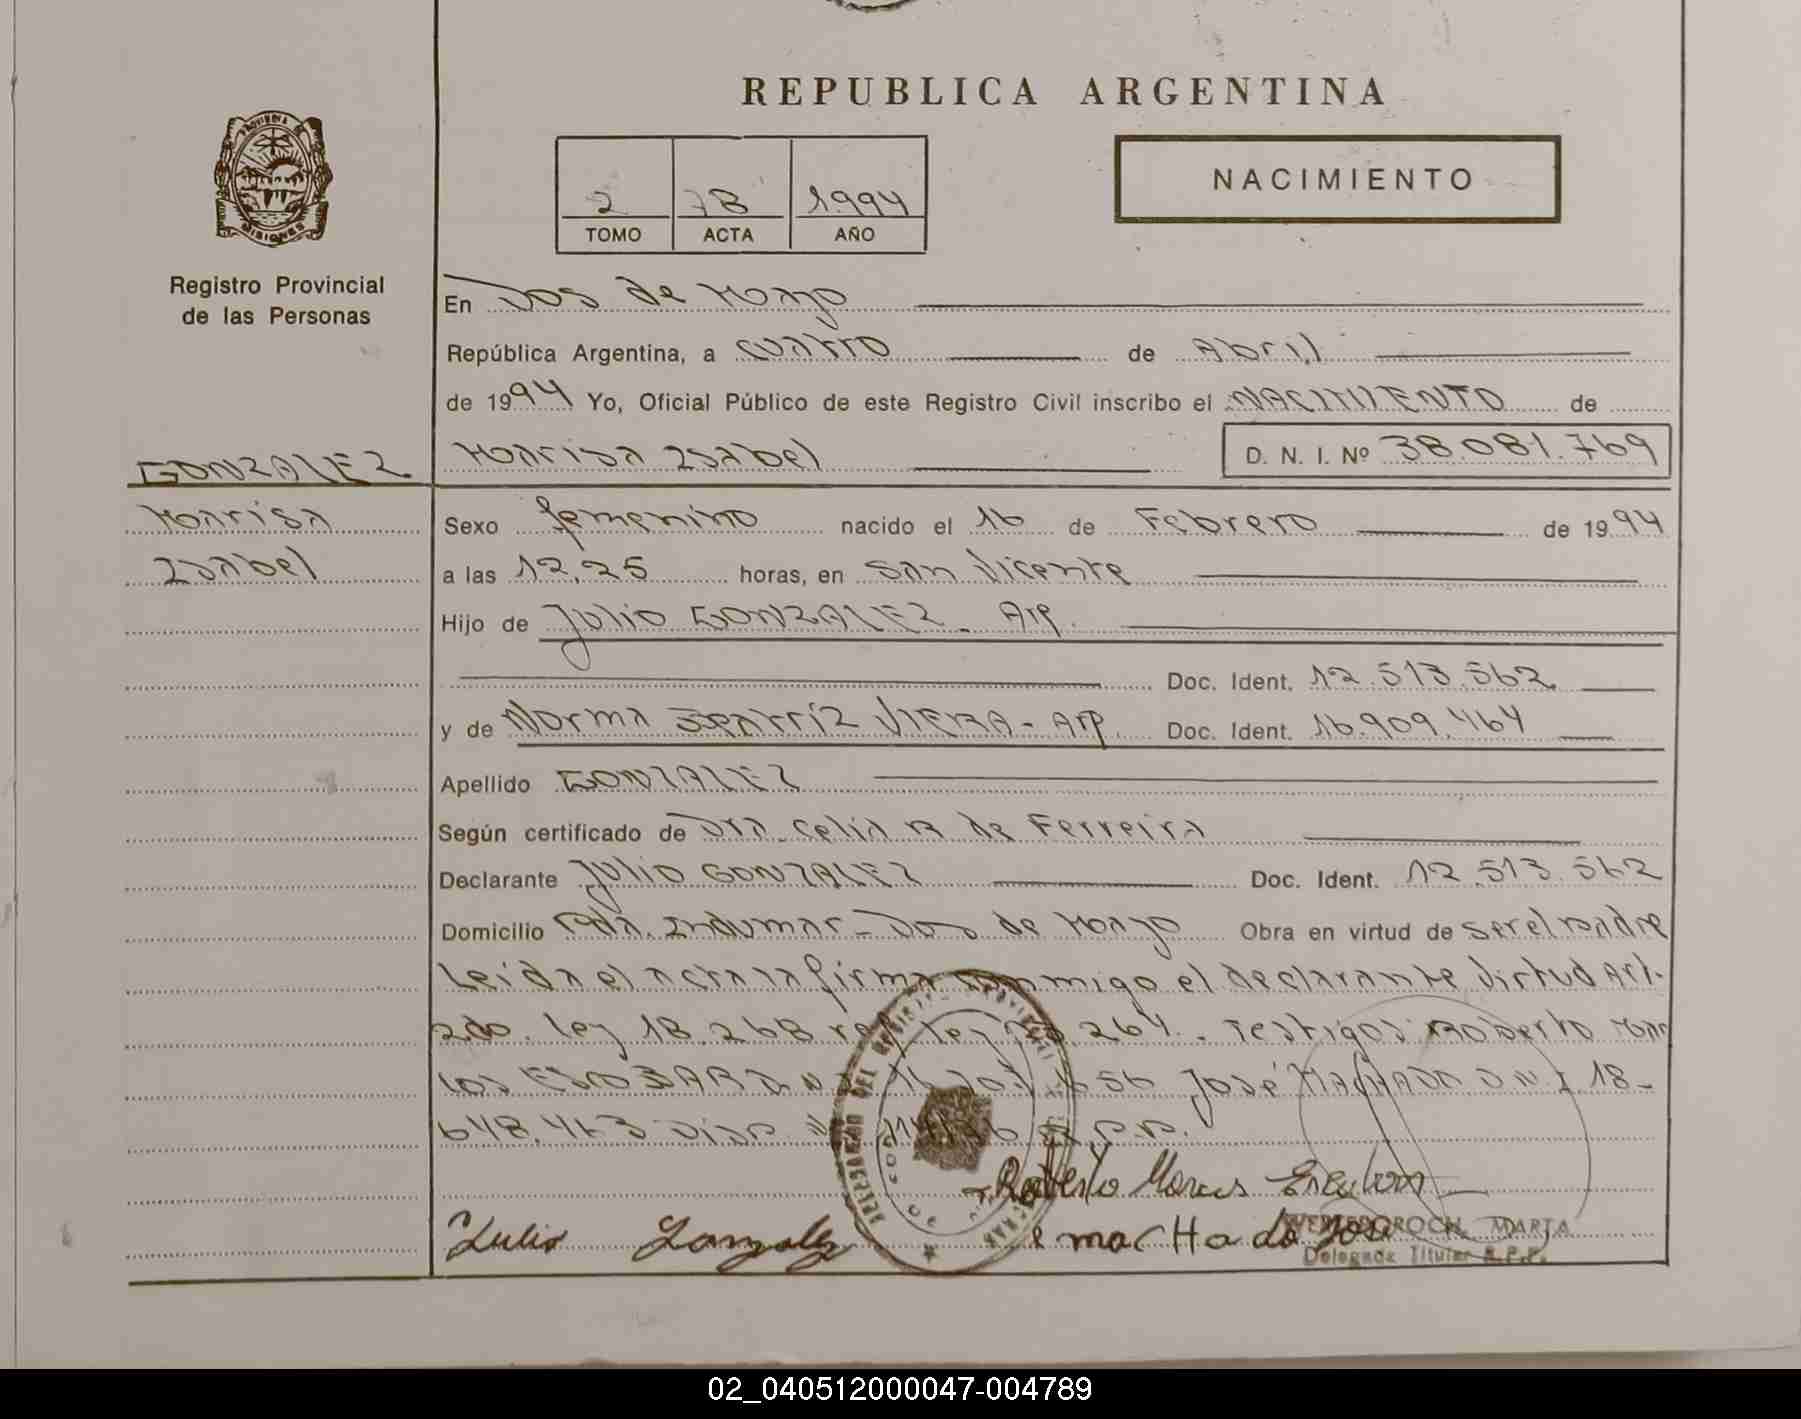 REPUBLICA ARGENTINA
NACIMIENTO
2 78 1994
TOMO ACTA AÑO
PROVINCIA DE
MISIONES
Registro Provincial
de las Personas
En Dos de Mayo
República Argentina, a cuatro de Abril
de 1994 Yo, Oficial Público de este Registro Civil inscribo el NACIMIENTO de
GONZALEZ Marisa Isabel D. N. I. Nº 38.081.769
Marisa Sexo femenino nacido el 16 de Febrero de 1994
Isabel a las 12,25 horas, en San Vicente
Hijo de Julio GONZALEZ - Arg.
Doc. Ident. 12.513.562
y de Norma Beatriz VIERA - Arg. Doc. Ident. 16.909.464
Apellido GONZALEZ
Según certificado de Dra. Celia R de Ferreira
Declarante Julio GONZALEZ Doc. Ident. 12.513.562
Domicilio Dos de Mayo Obra en virtud de ser el padre
Leida el acta la firma conmigo el declarante Virtud Art.
2do. Ley 18.268 ref Ley 264. - Testigos: Roberto
José MACHADO D.N.I 18-
648.463
Roberto
Julio Gonzalez Machado Jose
MARTA
Delegada Titular R.P.P.
02_040512000047-004789